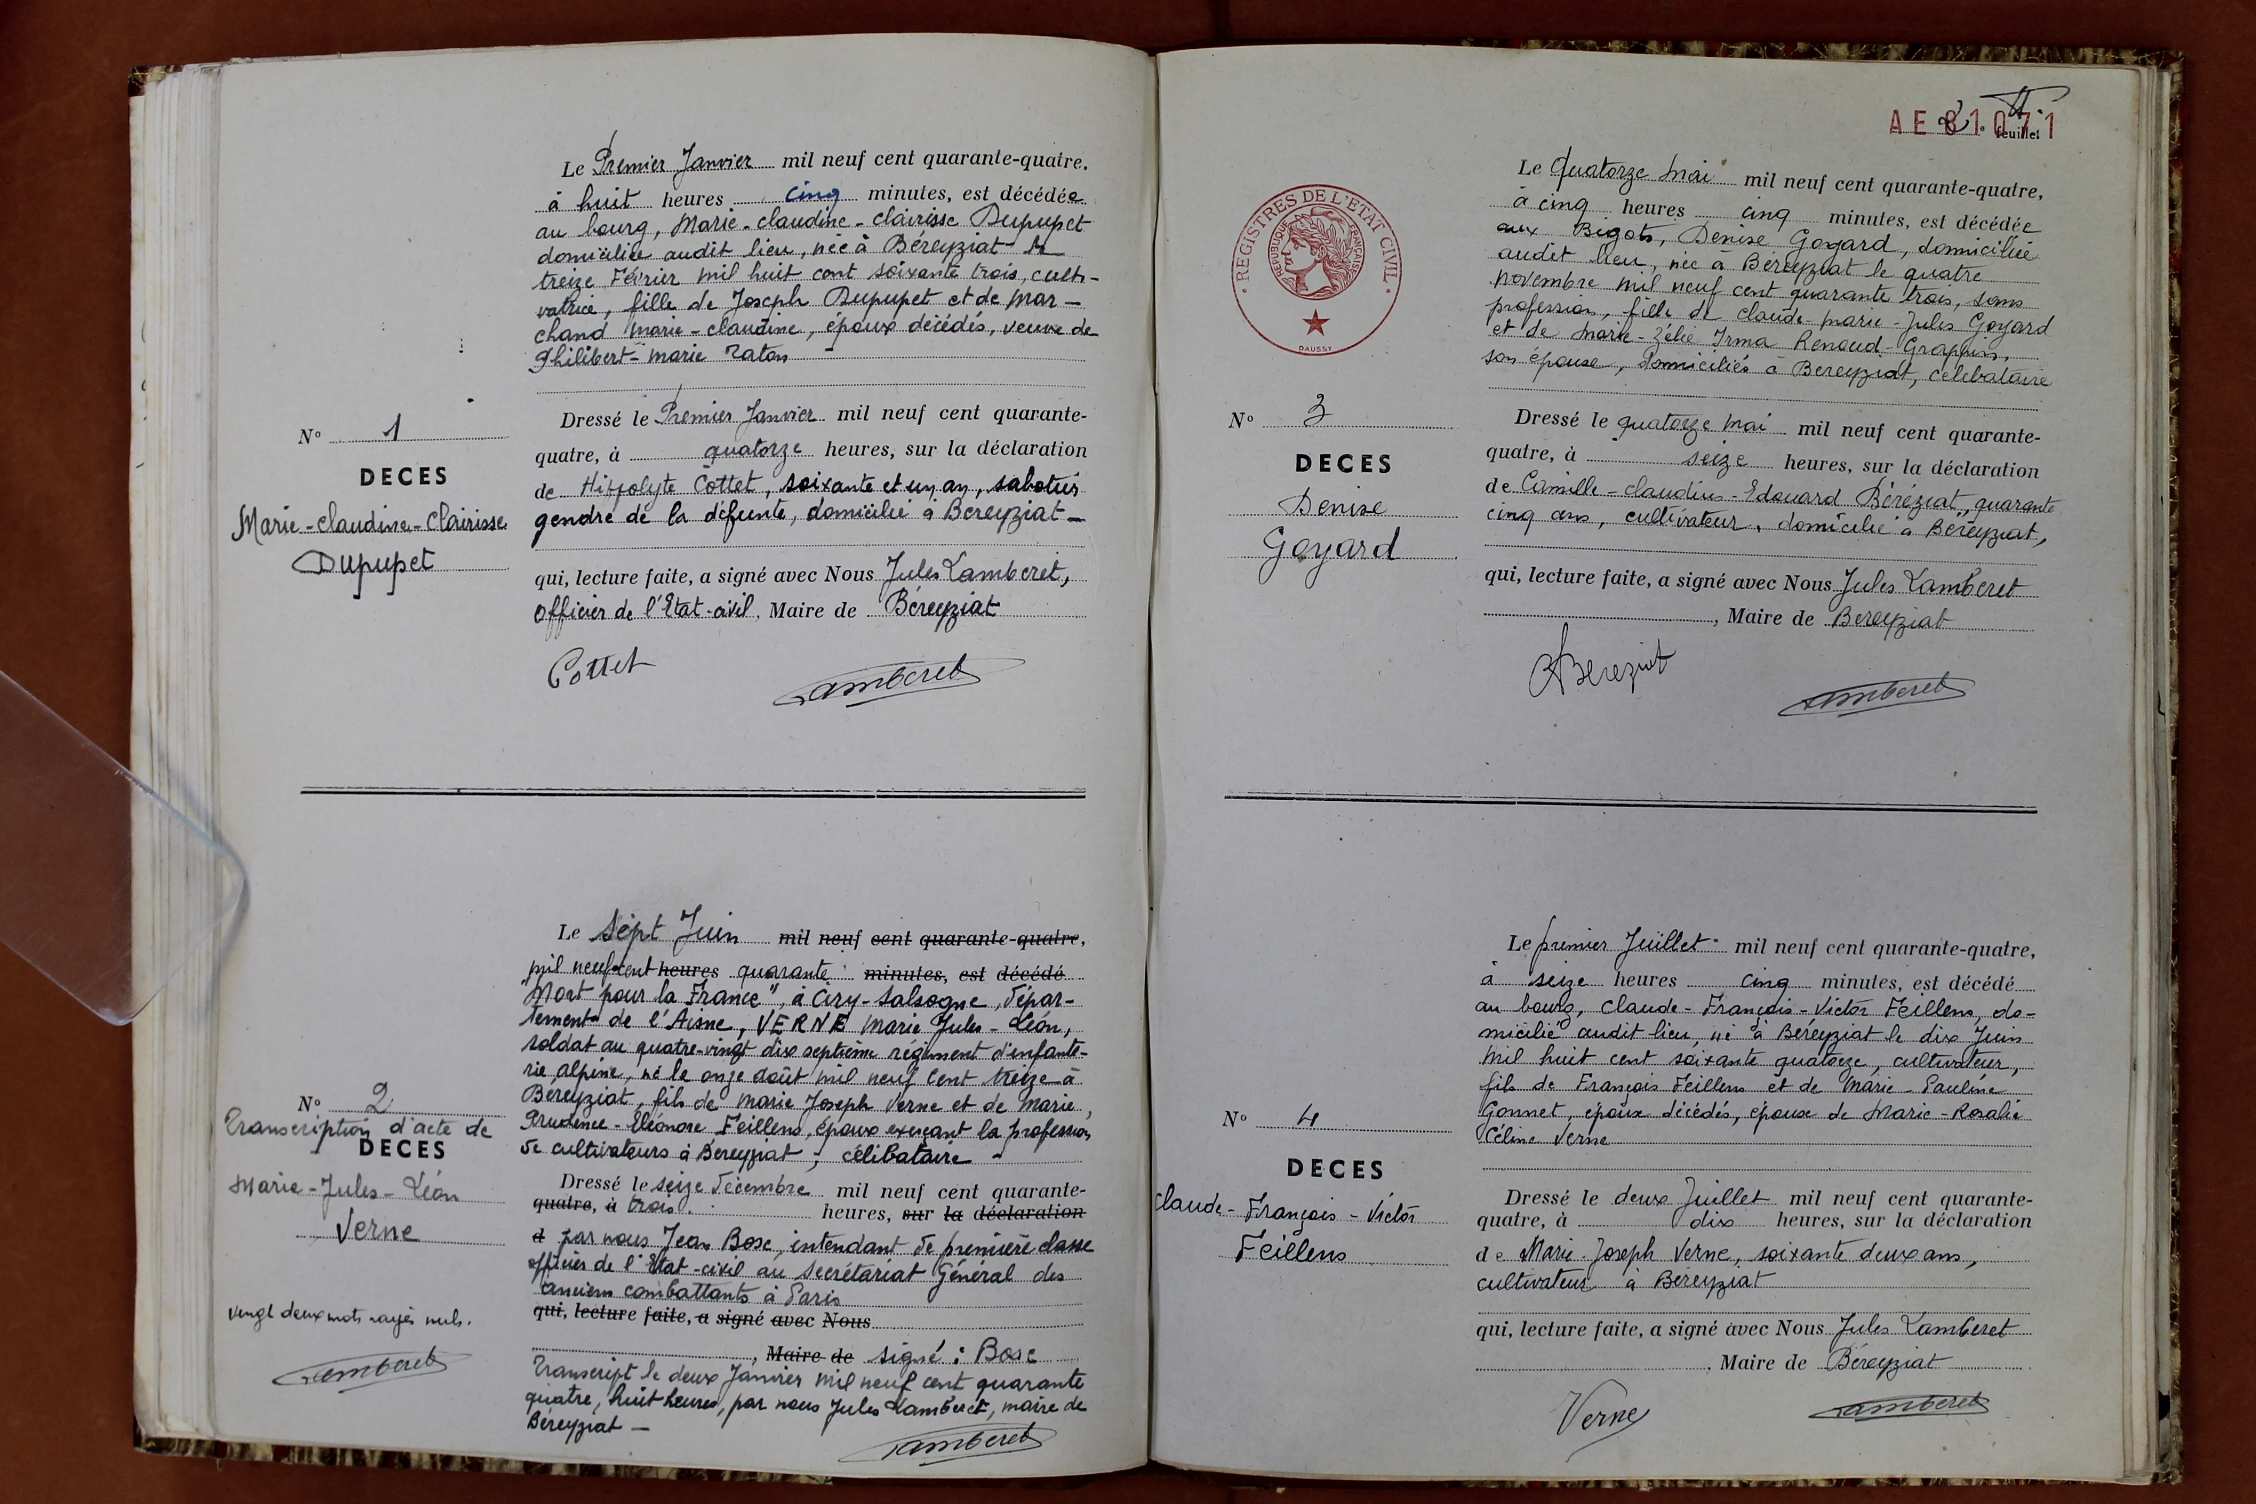 Le Premier Janvier mil neuf cent quarante-quatre,
à huit heures cinq minutes, est décédée
au bourg, Marie-claudine-clairisse Dupupet
domiciliée audit lieu, née à Béreyziat le
treize Février mil huit cent soixante trois, culti-
vatrice, fille de Joseph Dupupet et de Mar-
chand Marie-claudine, époux décédés, veuve de
Philibert-Marie Raton
N° 1
DECES
Marie-claudine-Clairisse
Dupupet
Dressé le Premier Janvier mil neuf cent quarante-
quatre, à quatorze heures, sur la déclaration
de Hippolyte Cottet, soixante et un an, sabotier
gendre de la défunte, domicilié à Béreyziat
qui, lecture faite, a signé avec Nous Jules Lamberet,
officier de l'Etat-civil, Maire de Béreyziat
Cottet
Lamberet
Le Sept Juin mil neuf cent quarante-quatre,
mil neuf cent heures quarante minutes, est décédé
"Mort pour la France", à Ciry-Salsogne, dépar-
tement de l'Aisne, VERNE Marie Jules-Léon,
soldat au quatre-vingt dix septième régiment d'infante-
rie alpine, né le onze août mil neuf cent treize à
Béreyziat, fils de Marie Joseph Verne et de Marie,
Prudence-Eléonore Feillens, époux exerçant la profession
de cultivateurs à Béreyziat, célibataire
N° 2
Transcription d'acte de
DECES
Marie-Jules-Léon
Verne
vingt deux mots rayés nuls.
Lamberet
Dressé le seize Décembre mil neuf cent quarante-
quatre, à trois heures, sur la déclaration
d par nous Jean Bosc, intendant de première classe
officier de l'Etat-civil au Secrétariat Général des
anciens combattants à Paris
qui, lecture faite, a signé avec Nous
, Maire de signé : Bosc
Transcript le deux Janvier mil neuf cent quarante
quatre, huit heures, par nous Jules Lamberet, maire de
Béreyziat
Lamberet
2e feuillet
AE 81071
REGISTRES DE L'ETAT CIVIL
REPUBLIQUE FRANÇAISE
DAUSSY
Le Quatorze Mai mil neuf cent quarante-quatre,
à cinq heures cinq minutes, est décédée
aux Bigots, Denise Goyard, domiciliée
audit lieu, née à Béreyziat le quatre
novembre mil neuf cent quarante trois, sans
profession, fille de claude-marie-Jules Goyard
et de Marie-Zélie Irma Renoud-Grappin,
son épouse, domiciliés à Béreyziat, célibataire
N° 3
DECES
Denise
Goyard
Dressé le quatorze Mai mil neuf cent quarante-
quatre, à seize heures, sur la déclaration
de Camille-claudius-Edouard Béréziat, quarante
cinq ans, cultivateur, domicilié à Béreyziat,
qui, lecture faite, a signé avec Nous Jules Lamberet
, Maire de Béreyziat
Bereziat
Lamberet
Le premier Juillet mil neuf cent quarante-quatre,
à seize heures cinq minutes, est décédé
au bourg, claude-François-Victor Feillens, do-
micilié audit lieu, né à Béreyziat le dix Juin
mil huit cent soixante quatorze, cultivateur,
fils de François Feillens et de Marie-Pauline
Gonnet, époux décédés, époux de Marie-Rosalie
Céline Verne
N° 4
DECES
claude-François-Victor
Feillens
Dressé le deux Juillet mil neuf cent quarante-
quatre, à dix heures, sur la déclaration
de Marie-Joseph Verne, soixante deux ans,
cultivateur à Béreyziat
qui, lecture faite, a signé avec Nous Jules Lamberet
, Maire de Béreyziat
Verne
Lamberet